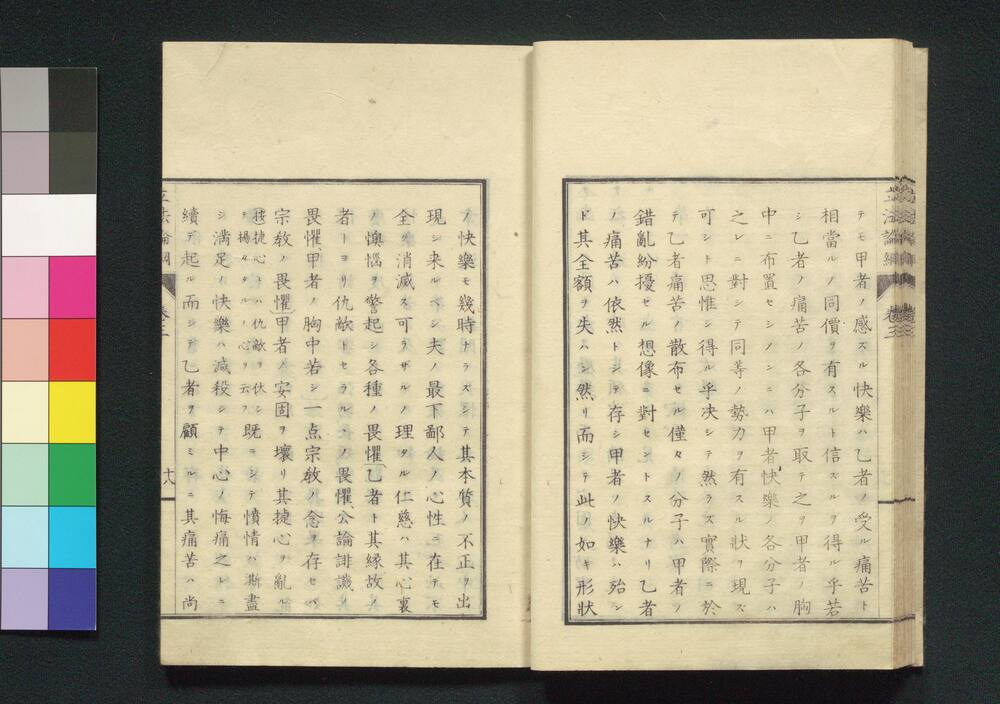 テモ甲者ノ感ズル快樂ハ乙者ノ受ル痛苦ト
相當ルノ同價ヲ有スルト信ズルヲ得ル乎若
シ乙者ノ痛苦ノ各分子ヲ取テ之ヲ甲者ノ胸
中ニ布置セシノンニハ甲者快樂ノ各分子ハ
之レニ對シテ同等ノ勢力ヲ有スル狀ヲ現ズ
可シト思惟シ得ル乎决シテ然ラズ實際ニ於
テ乙者痛苦ノ散布セル僅々ノ分子ハ甲者ノ
錯亂紛擾セル想像ニ對セントスルナリ乙者
ノ痛苦ハ依然トシテ存シ甲者ノ快樂ハ殆ン
ド其全額ヲ失ハン然リ而シテ此ノ如キ形狀
ノ快樂モ幾時ナラズシテ其本質ノ不正ヲ出
現シ来ルベシ夫ノ最下鄙人ノ心性ニ在テモ
全ク消滅ス可ラザルノ理タル仁慈ハ其心裏
ノ懊惱ヲ警起シ各種ノ畏懼乙者ト其縁故ノ
者トヨリ仇敵トセラルヽノ畏懼、公論誹譏ノ
畏懼、甲者ノ胸中若シ一点宗敎ノ念ヲ存セバ
宗敎ノ畏懼甲者ノ安固ヲ壞リ其捷心ヲ亂ル
捷心トハ仇敵ヲ伏シ
揚々タルノ心ヲ云フ
既ニシテ憤情ハ漸盡
シ滿足ノ快樂ハ減殺シテ中心ノ悔痛之レニ
續テ起ル而シテ乙者ヲ顧ミルニ其痛苦ハ尚
立法論綱
卷三
十八